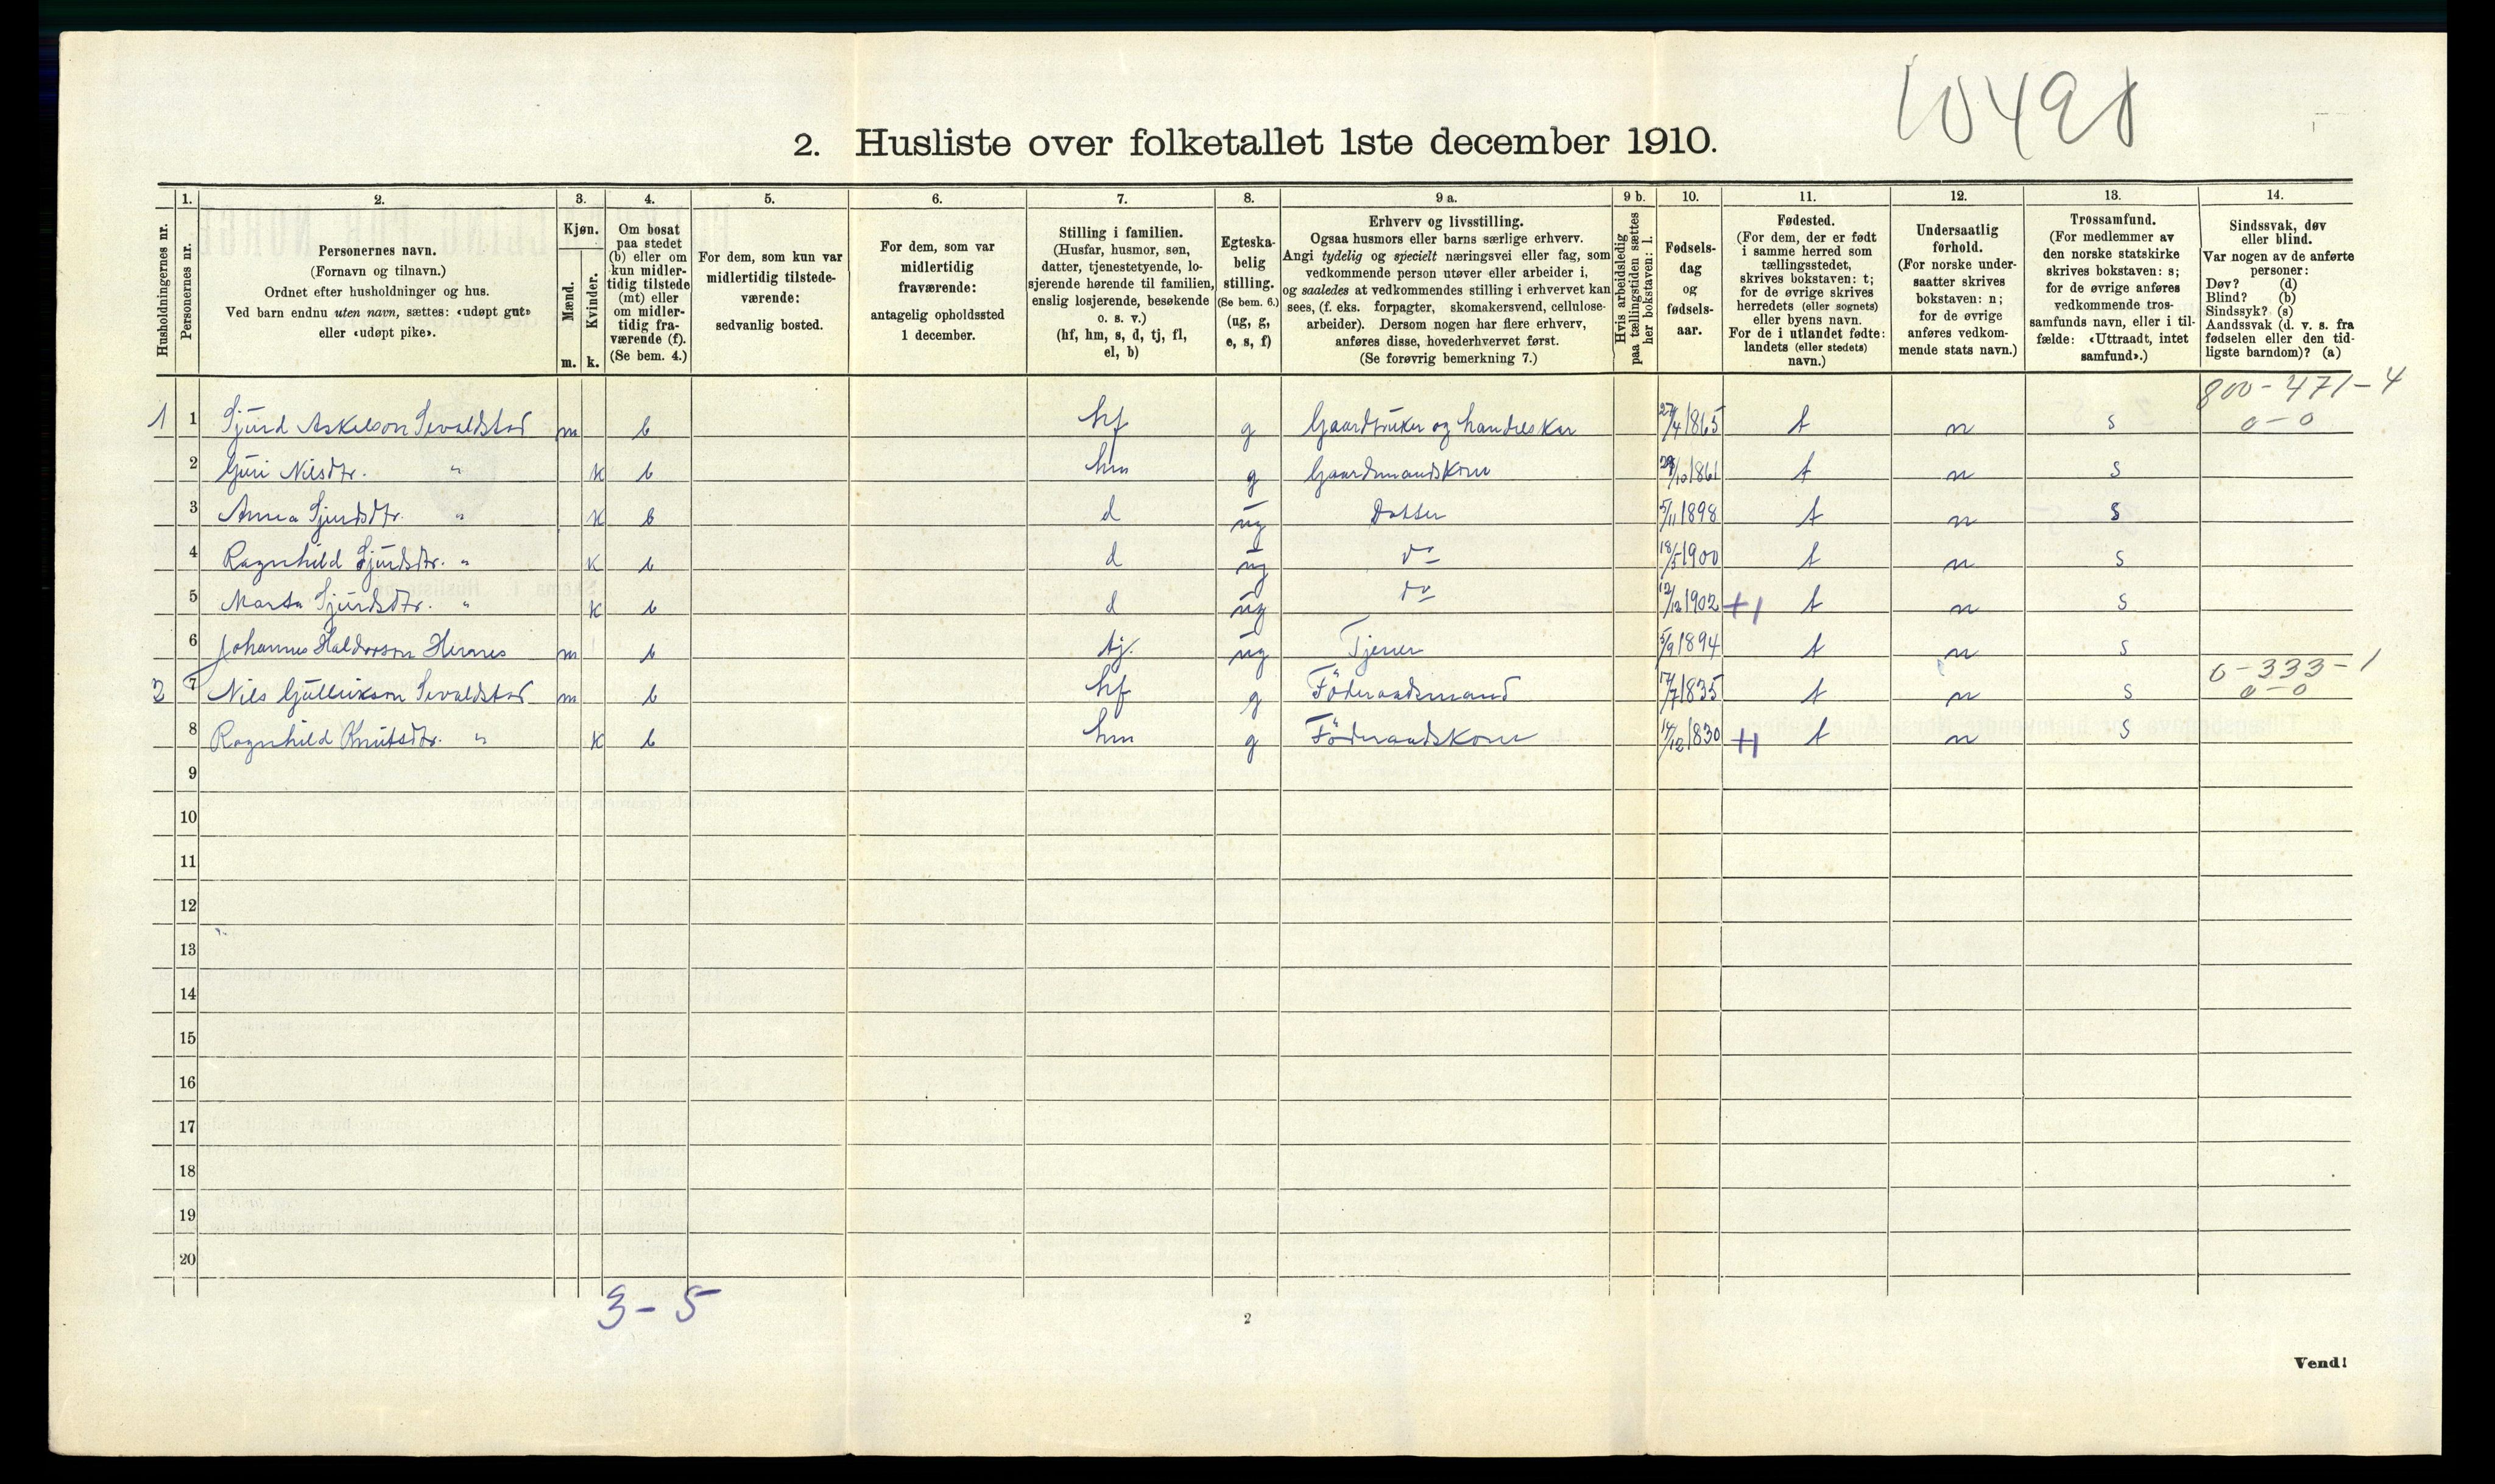 10491
2. Husliste over folketallet 1ste december 1910.
Husholdningernes nr.
1.
Personernes nr.
2.
Personernes navn.
(Fornavn og tilnavn.)
Ordnet efter husholdninger og hus.
Ved barn endnu uten navn, sættes: «udøpt gut»
eller «udøpt pike».
3.
Kjøn.
Mænd.
m.
Kvinder.
k.
4.
Om bosat
paa stedet
(b) eller om
kun midler-
tidig tilstede
(mt) eller
om midler-
tidig fra-
værende (f).
(Se bem. 4.)
5.
For dem, som kun var
midlertidig tilstede-
værende:
sedvanlig bosted.
6.
For dem, som var
midlertidig
fraværende:
antagelig opholdssted
1 december.
7.
Stilling i familien.
(Husfar, husmor, søn,
datter, tjenestetyende, lo-
sjerende hørende til familien,
enslig losjerende, besøkende
o. s. v.)
(hf, hm, s, d, tj, fl,
el, b)
8.
Egteska-
belig
stilling.
(Se bem. 6.)
(ug, g,
e, s, f)
9 a.
Erhverv og livsstilling.
Ogsaa husmors eller barns særlige erhverv.
Angi tydelig og specielt næringsvei eller fag, som
vedkommende person utøver eller arbeider i,
og saaledes at vedkommendes stilling i erhvervet kan
sees, (f. eks. forpagter, skomakersvend, cellulose-
arbeider). Dersom nogen har flere erhverv,
anføres disse, hovederhvervet først.
(Se forøvrig bemerkning 7.)
9 b.
Hvis arbeidsledig
paa tællingstiden sættes
her bokstaven: l.
10.
Fødsels-
dag
og
fødsels-
aar.
11.
Fødested.
(For dem, der er født
i samme herred som
tællingsstedet,
skrives bokstaven: t;
for de øvrige skrives
herredets (eller sognets)
eller byens navn.
For de i utlandet fødte:
landets (eller stedets)
navn.)
12.
Undersaatlig
forhold.
(For norske under-
saatter skrives
bokstaven: n;
for de øvrige
anføres vedkom-
mende stats navn.)
13.
Trossamfund.
(For medlemmer av
den norske statskirke
skrives bokstaven: s;
for de øvrige anføres
vedkommende tros-
samfunds navn, eller i til-
fælde: «Uttraadt, intet
samfund».)
14.
Sindssvak, døv
eller blind.
Var nogen av de anførte
personer:
Døv? (d)
Blind? (b)
Sindssyk? (s)
Aandssvak (d. v. s. fra
fødselen eller den tid-
ligste barndom)? (a)
800-471-4
1 1 Sjurd Askelson Sevaldstad m b hf g Gaardbruker og handelskar 27/4 1865 t n s 0-0
2 Guri Nilsdtr. " k b hm g Gaardmandskone /10 1861 t n s
3 Anna Sjurdsdtr. " k b d ug Datter 5/11 1898 t n s
4 Ragnhild Sjurdsdtr. " k b d ug do 18/5 1900 t n s
5 Marta Sjurdsdtr. " k b d ug do 12/12 1902 +1 t n s
6 Johannes Haldorson Hernes m b tj. ug Tjener 5/9 1894 t n s
0-333-1
2 7 Nils Gullikson Sevaldstad m b hf g Föderaadsmand 17/7 1835 t n s 0-0
8 Ragnhild Knutsdtr. " k b hm g Föderaadskone 14/12 1830 +1 t n s
9
10
11
12
13
14
15
16
17
18
19
20
3-5
2
Vend!